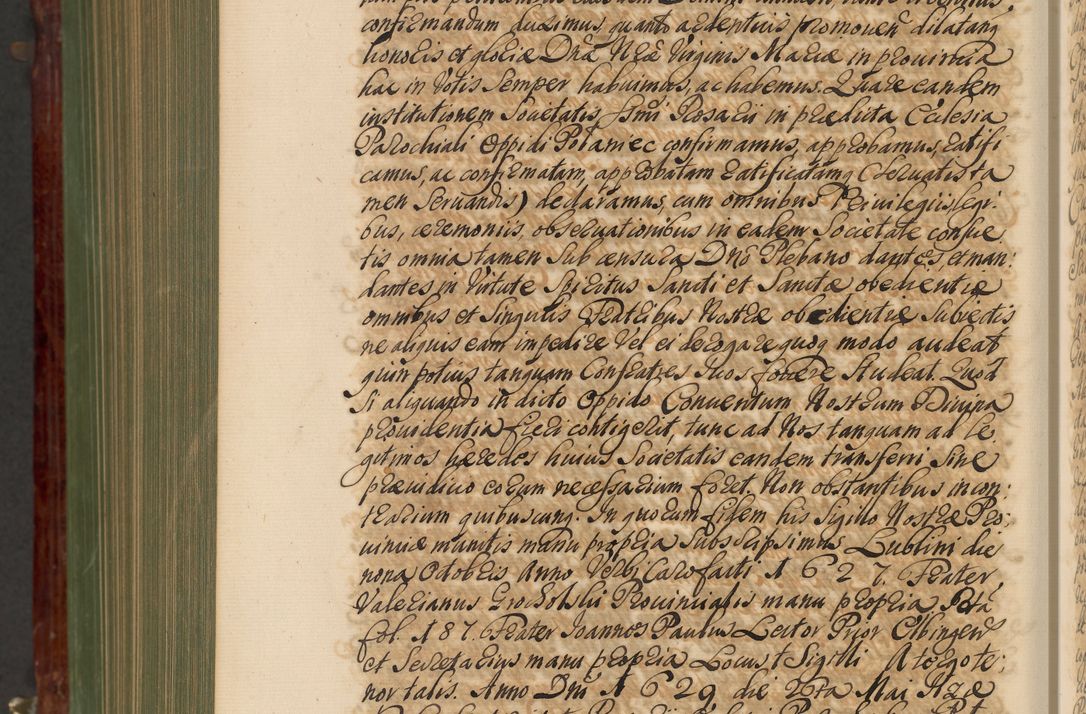 confirmandum duximus, quanto ardentius promouere dilatanq
honoris et gloriæ Dnæ Nræ Virginis Mariæ in prouincia
hac in Votis Semper habuimus, ac habemus. Quare eandem
institutionem Societatis SSmi Rosarii in prædicta Ecclesia
Parochiali Oppidi Potaniec confirmamus, approbamus, ratifi
camus, ac confirmatam, approbatam ratificatamq (Seruatis ta
men Seruandis) declaramus, cum omnibus Priuilegiis, legi:
bus, ceremoniis, obseruationibus in eadem Societate consue
tis omnia tamen Sub censura Dno Plebano dantes et man:
dantes in Virtute Spiritus Sancti et Sanctæ obedientiæ
omnibus et Singulis Fratribus Nostræ obedientiæ Subiectis
ne aliquis eam impedire Vel ei derogare quoq modo audeat
quin potius tanquam Confratres Suos fouere Studeat. Quod
Si aliquando in dicto Oppido Conuentum Nostrum Diuina
prouidentia fieri contigerit, tunc ad Nos tanquam ad le
gitimos hæredes huius Societatis eandem transferri Sine
præiudicio coram necessarium foret. Non obstantibus incon:
trarium quibuscunq. In quorum fidem his Sigillo Nostræ Pro:
uinciæ munitis manu propria Subscripsimus Lublini die
nona Octobris Anno Verbi Caro facti 1627. Frater
Valerianus Grocholskii Prouincialis manu propria Rta
fol. 187. Frater Joannes Paulus Lector Prior Elbingens
et Secretarius manu propria Locus Sigilli A tergo te:
nor talis. Anno Dni 1629 die 2da Maii Hæ